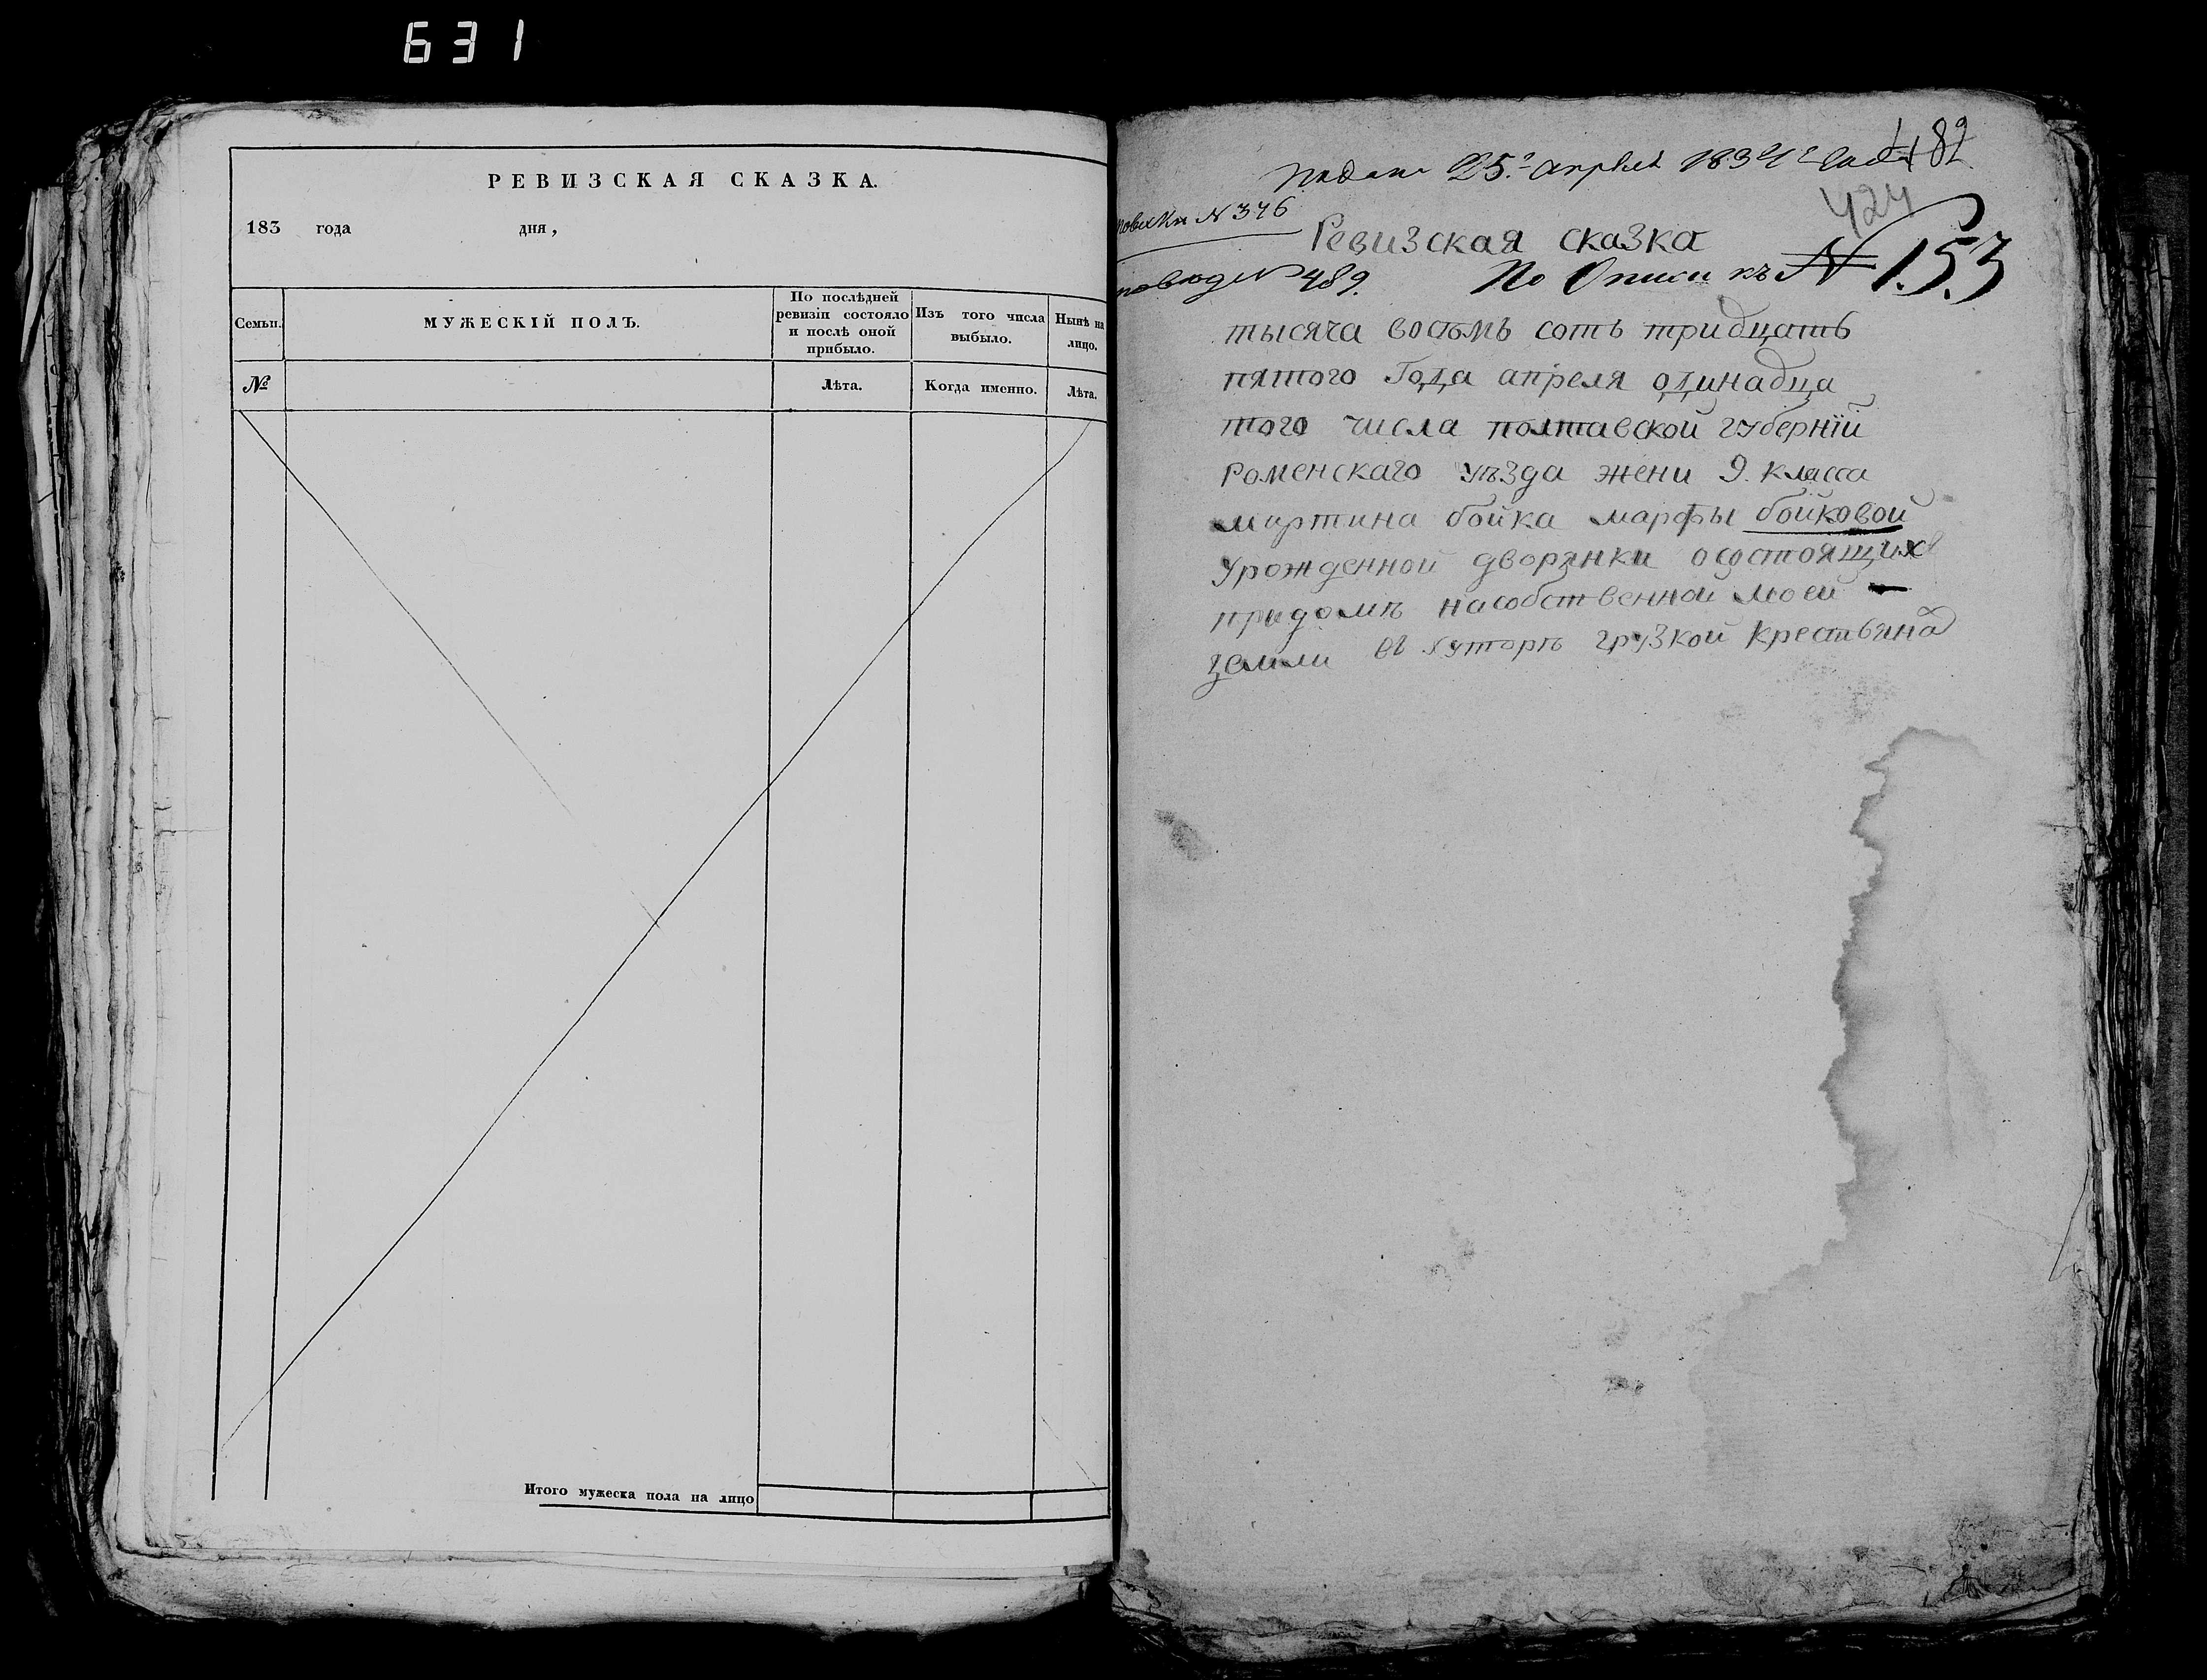 631
РЕВИЗСКАЯ СКАЗКА.
183 года дня,
Семьи.
МУЖЕСКІЙ ПОЛЪ.
По послѣдней
ревизіи состояло
и послѣ оной
прибыло.
Изъ того числа
выбыло.
Нынѣ на
лицо.
№
Лѣта.
Когда именно.
Лѣта.
Итого мужеска пола на лицо
25.го апреля 183 года
482
424
N 376
Ревизская сказка
N 489.
По Описи къ N 153
тысяча восъмъ сотъ тридцать
пятого Года апреля одинадца
того числа полтавской губерній
Роменскаго уѣзда жени 9. класса
мартина бойка марфы бойковой
урожденной дворянки осостоящихъ
придомѣ насобственной моей
земли въ хуторѣ грузкой крестьяна